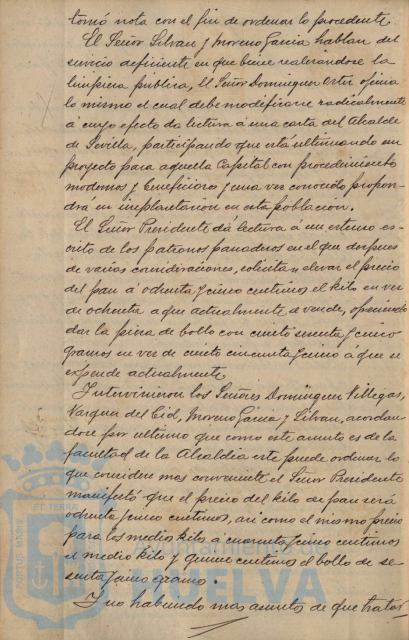 tomó nota con el fin de ordenar lo procedente.
El Señor Silvan y Moreno Garcia hablan del
servicio deficiente en que viene realizandose la
limpieza publica, El Señor Dominguez Ortiz opina
lo mismo el cual debe modificarse radicalmente
á cuyo efecto da lectura á una carta del Alcalde
de Sevilla, participando que está ultimando un
proyecto para aquella Capital con procedimientos
modernos y beneficiosos y una vez conocido propon-
drá su implantacion en esta poblacion.
El Señor Presidente dá lectura á un extenso es-
crito de los patronos panaderos en el que despues
de varias consideraciones, solicitan elevar el precio
del pan á ochenta y cinco centimos el kilo en vez
de ochenta a que actualmente se vende, ofreciendo
dar la pieza de bollo con ciento sesenta y cinco
gramos en vez de ciento cincuenta y cinco á que se
expende actualmente.
Intervinieron los Señores Dominguez Villegas,
Vazquez del Cid, Moreno Garcia y Silvan, acordan-
dose por ultimo que como este asunto es de la
facultad de la Alcaldia este puede ordenar lo
que considere mas conveniente el Señor Presidente
manifestó que el precio del kilo de pan será
ochenta y cinco centimos, asi como el mismo precio
para los medios kilos á cuarenta y cinco centimos
el medio kilo y quince centimos el bollo de se-
senta y cinco gramos.
Y no habiendo mas asuntos de que tratar
PORTUS MARIS ET TERRAE
Ayuntamiento de
HUELVA